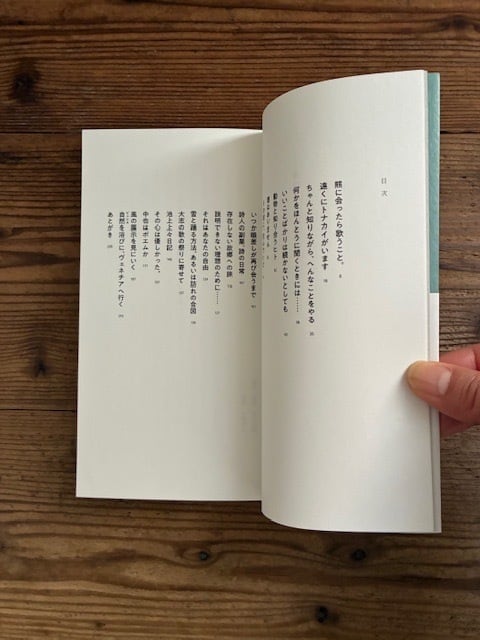 目次
熊に会ったら歌うこと。 8
遠くにトナカイがいます 18
ちゃんと知りながら、へんなことをやる
何かをほんとうに聞くときには……
いいことばかりは続かないとしても
動物と知り合うヒト
いつか眼差しが再び会うまで
詩人の副業、詩の日常
存在しない故郷への旅
説明できない理想のために……
それはあなたの自由
雪と踊る方法、あるいは訪れの合図
大志の歌の祭りに寄せて
池上上々日記
その心は優しかった。
中也はポエムか
風の展示を見にいく
自然を浴びに、ヴェネチアへ行く
あとがき